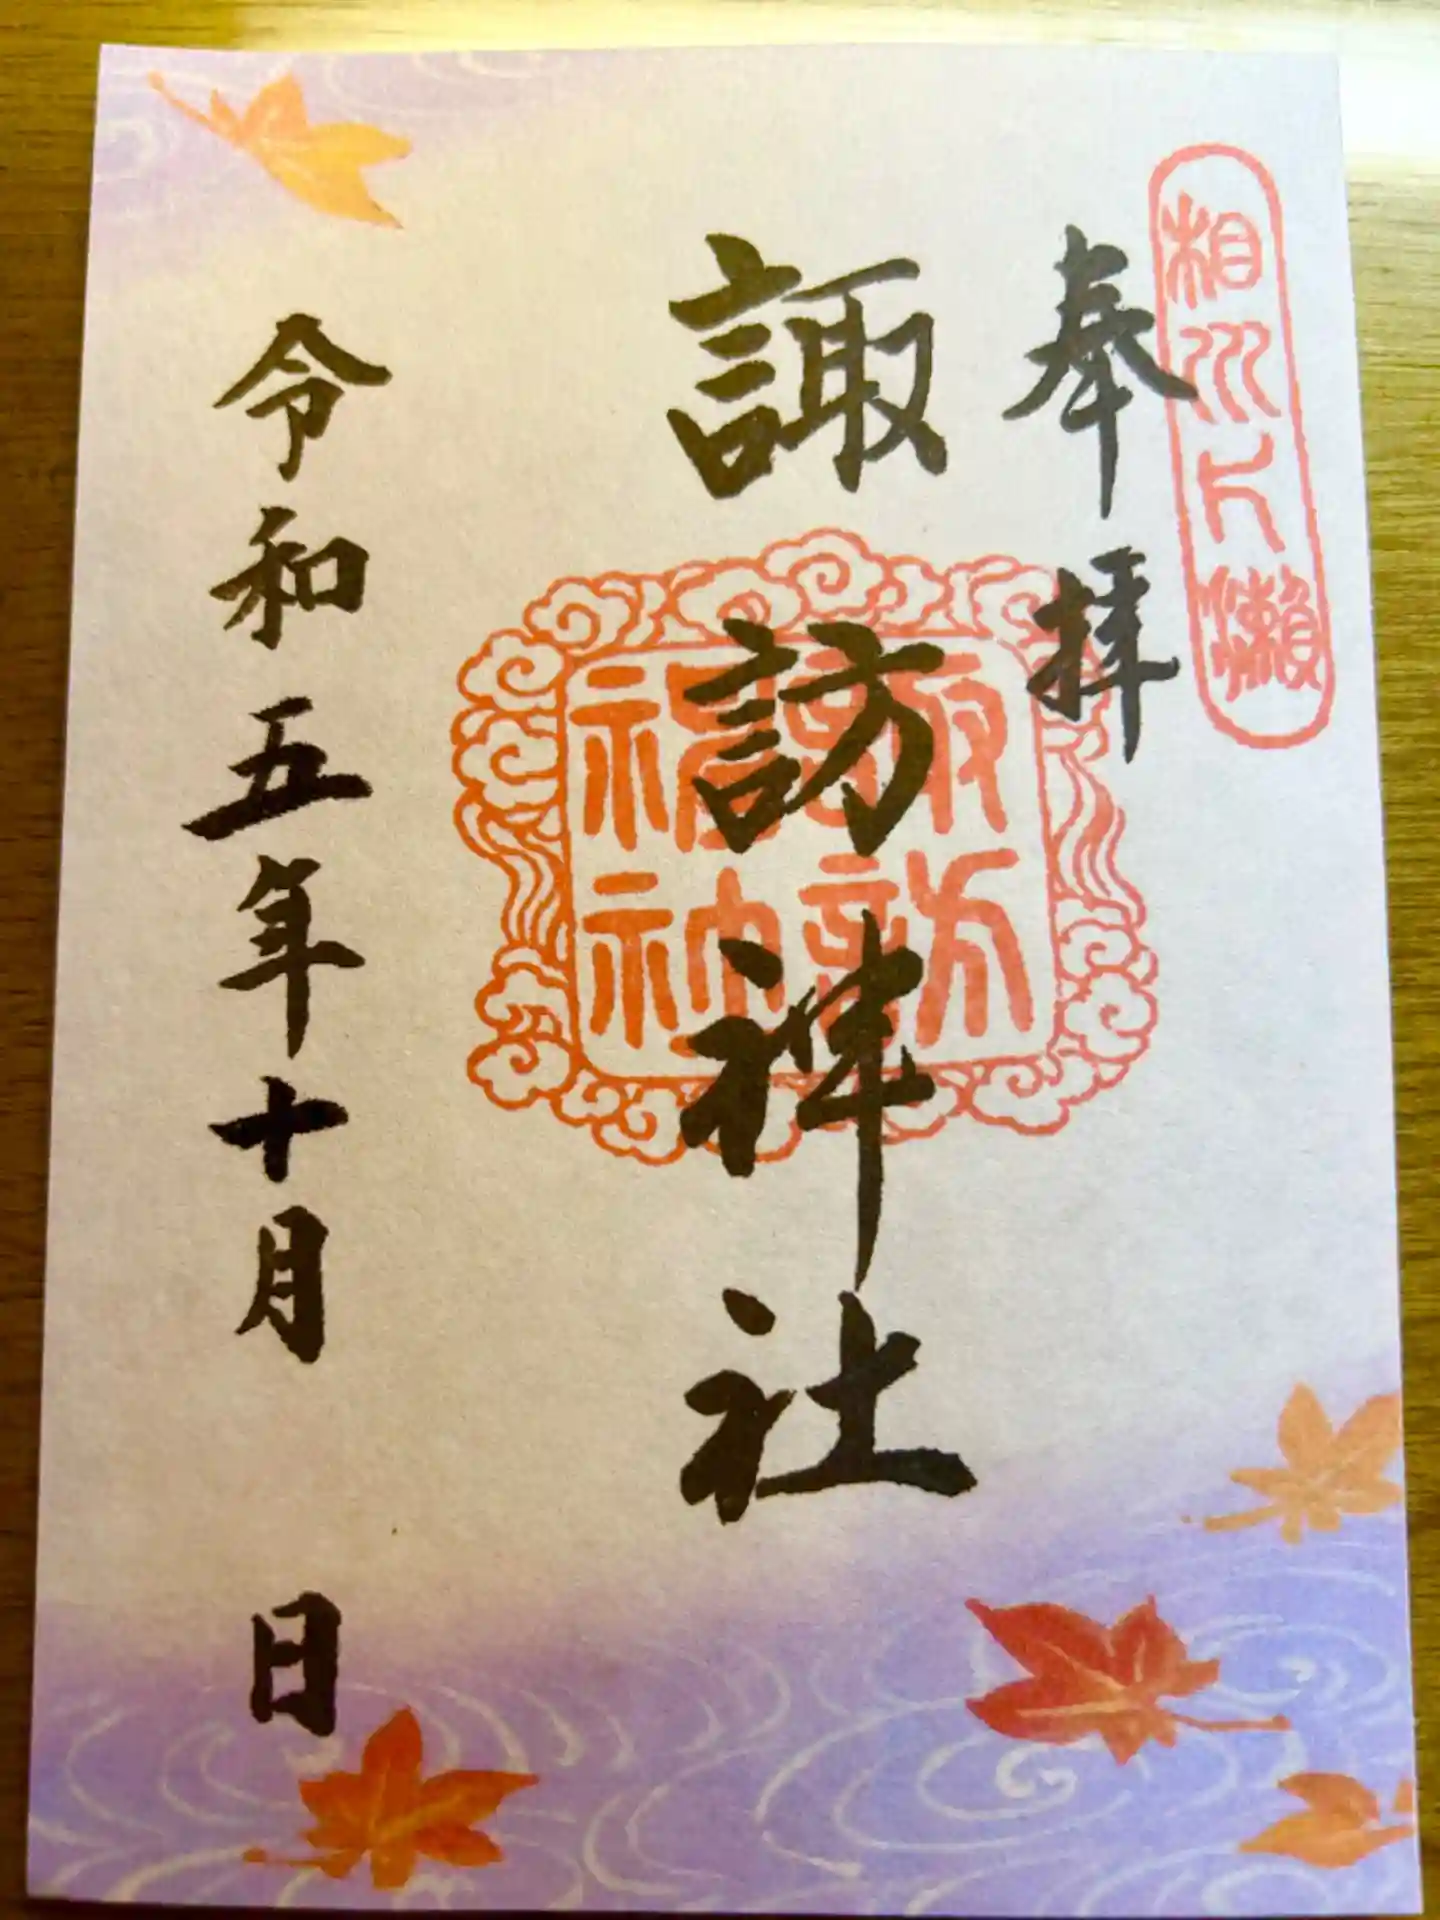 相州片瀬
奉拝
諏訪神社
諏訪
令和五年十月 日